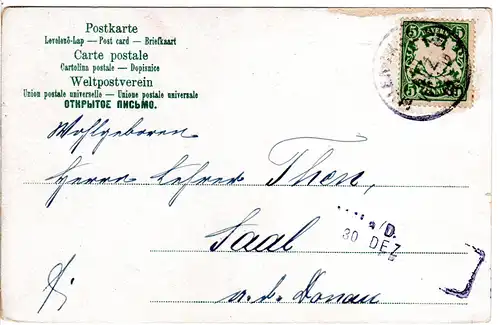 Postkarte
Levelező-Lap — Post card — Briefkaart
Carte postale
Cartolina postale — Dopisnice
Weltpostverein
Union postale universelle — Unione postale universale
ОТКРЫТОЕ ПИСЬМО.
5 BAYERN 5
5 5
Wohlgeboren
Herrn Lehrer Thon,
a/D.
30 DEZ
Saal
a. d. Donau